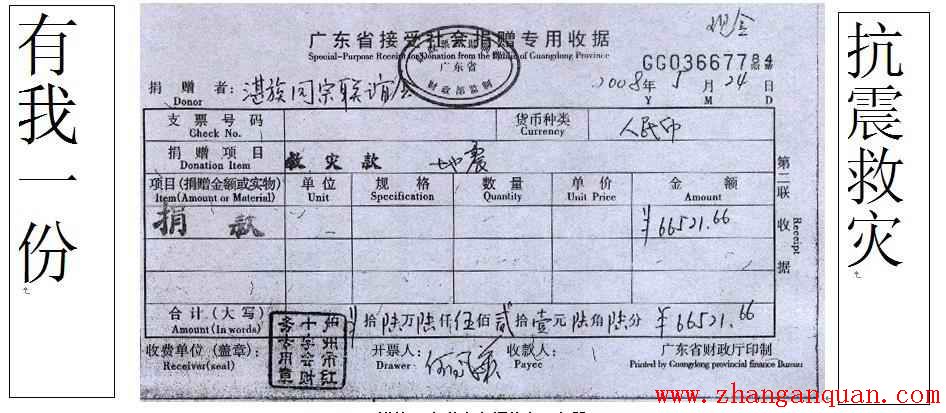 抗震救灾
有我一份
现金
广东省接受社会捐赠专用收据
Special-Purpose Receipt for Donation from the Public of Guangdong Province
广东省
财政部监制
GG03667784
捐赠者：湛族同宗联谊会
Donor
2008年5月24日
Y M D
支票号码
Check No.
货币种类
Currency
人民币
捐赠项目
Donation Item
救灾款 地震
项目(捐赠金额或实物)
Item(Amount or Material)
单位
Unit
规格
Specification
数量
Quantity
单价
Unit Price
金额
Amount
捐款
¥66521.66
第二联 收据
Receipt
合计(大写)
Amount(In words)
¥拾陆万陆仟伍佰贰拾壹元陆角陆分 ¥66521.66
州市红
十字会财
务专用章
收费单位(盖章)：
Receiver(seal)
开票人：
Drawer
收款人：
Payee
广东省财政厅印制
Printed by Guangdong provincial finance Bureau
www.zhanganquan.com